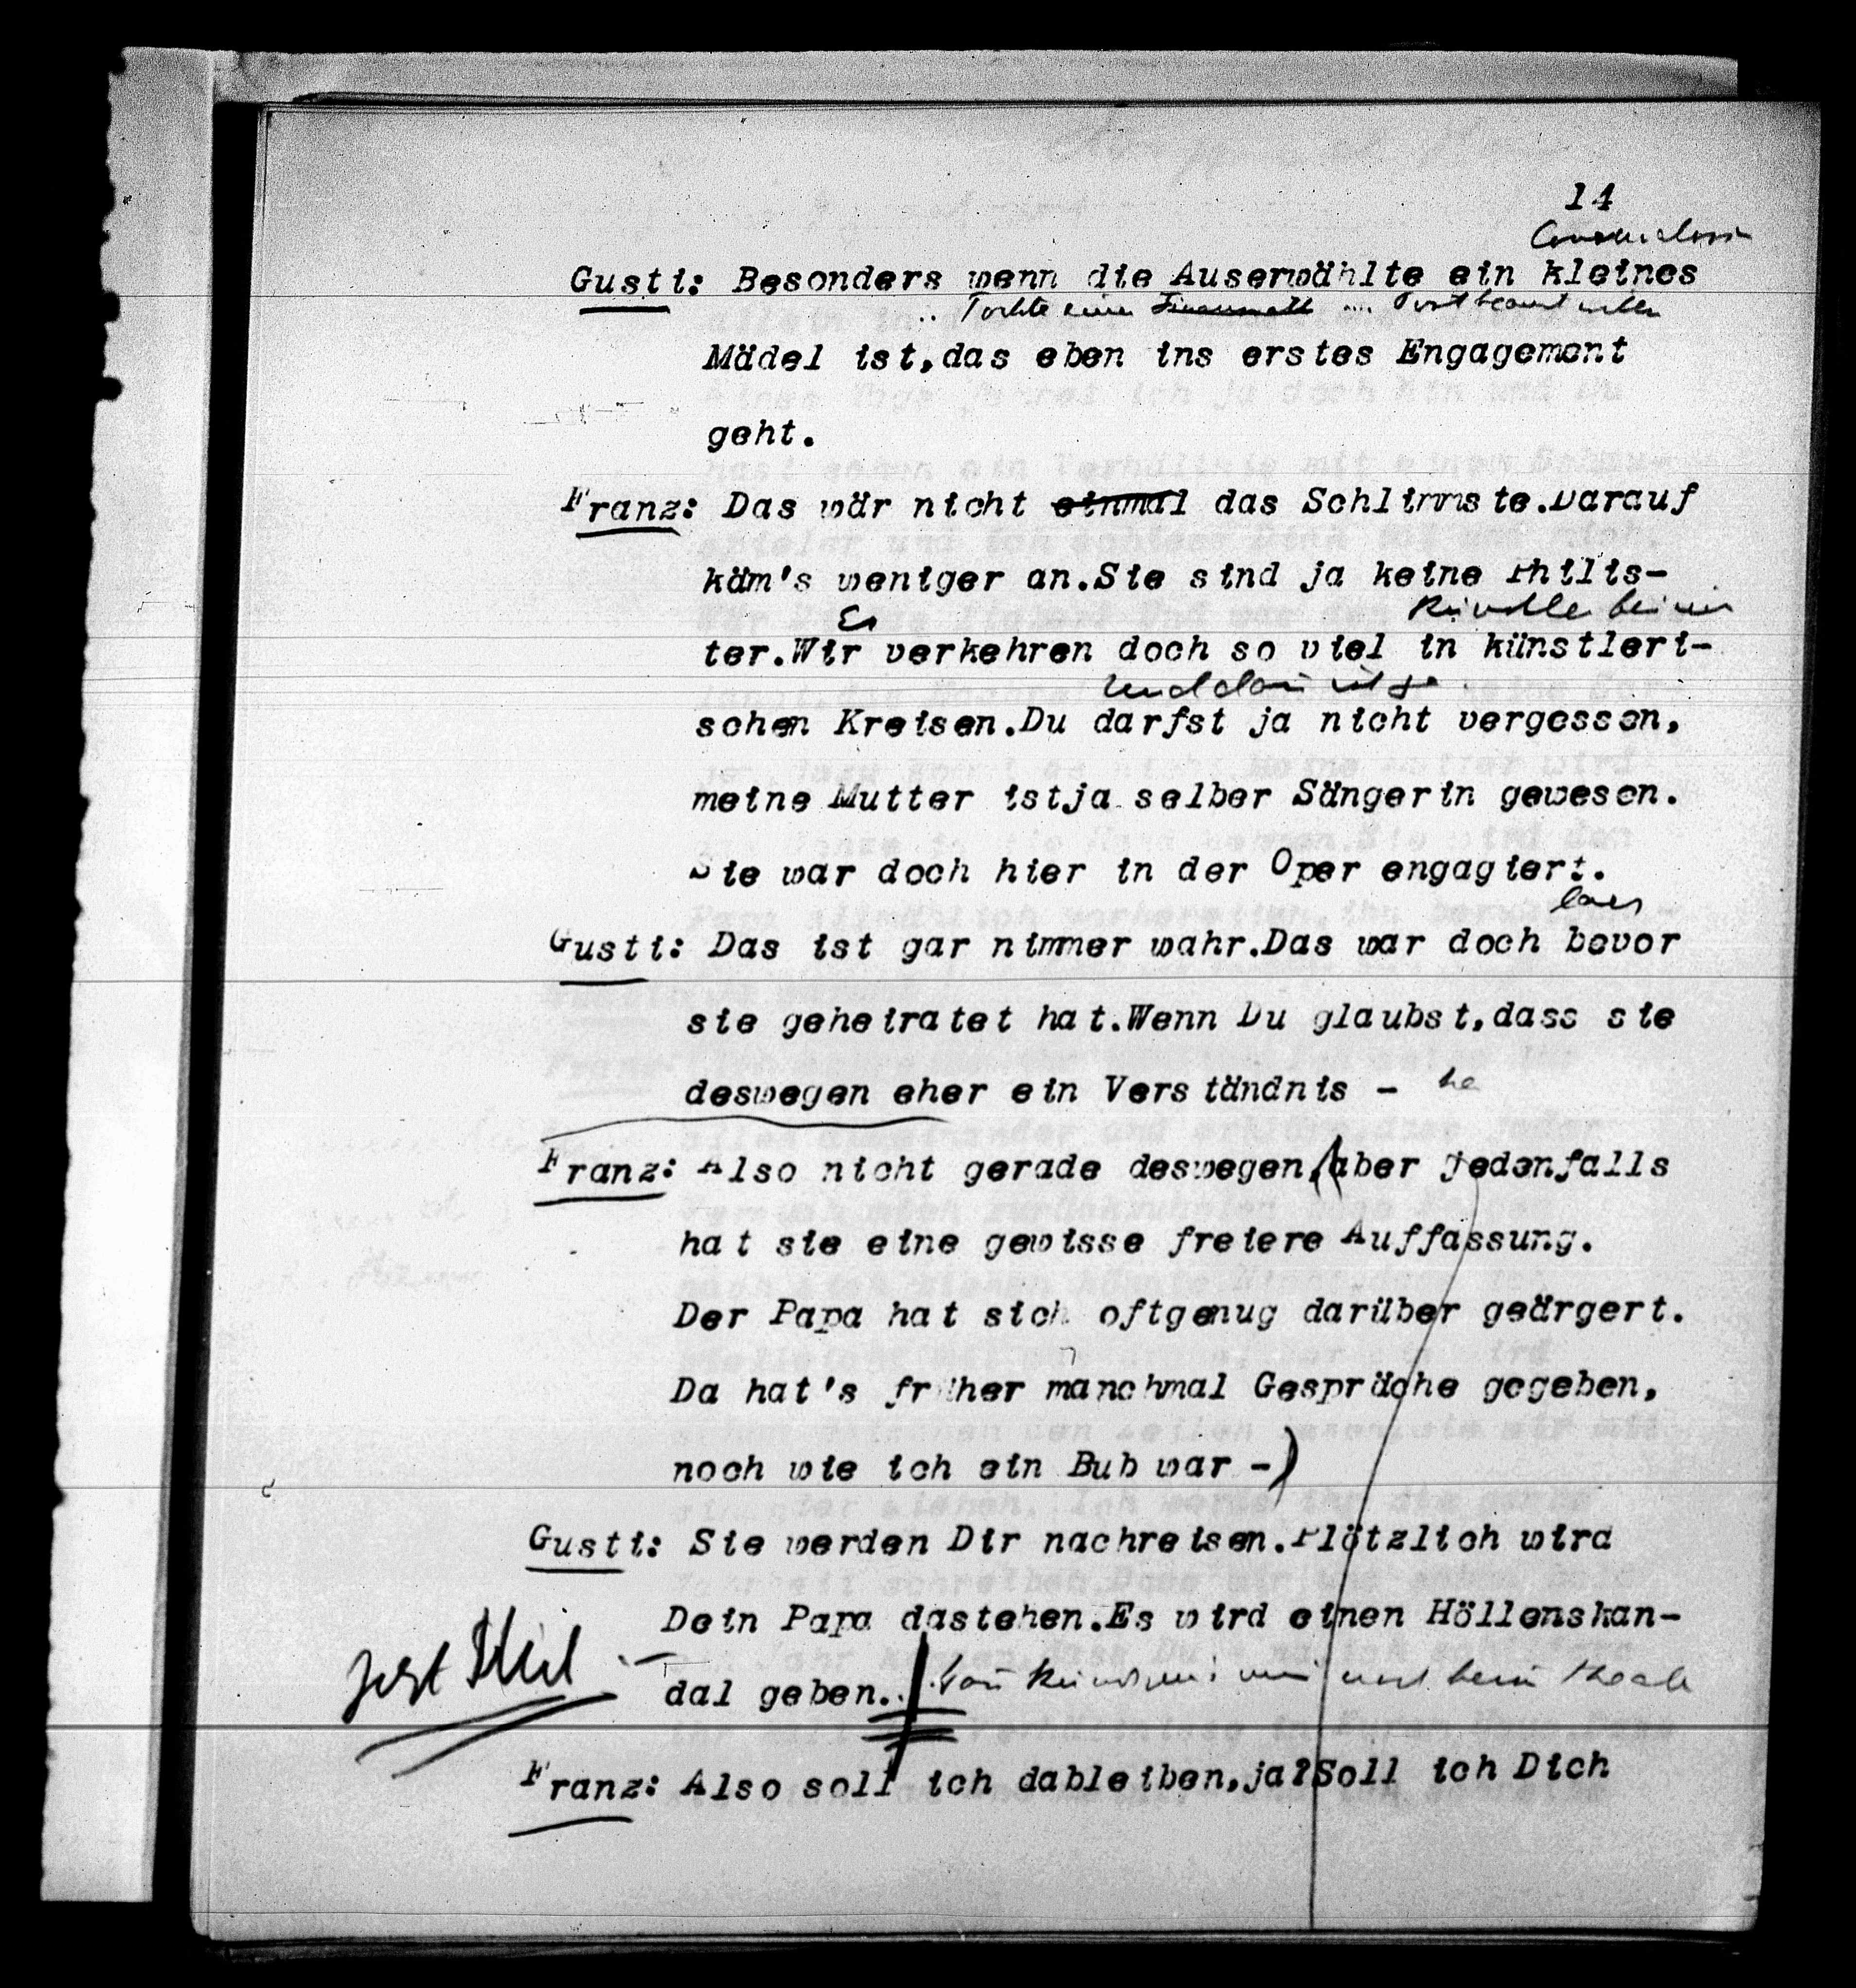 14
Gusti: Besonders wenn die Auserwählte ein kleines
Mädel ist,das eben ins erstes Engagement
geht.
Franz: Das wär nicht einmal das Schlimmste.Darauf
käm's weniger an.Sie sind ja keine Philis-
Es
ter.Wir verkehren doch so viel in künstleri-
schen Kreisen.Du darfst ja nicht vergessen,
meine Mutter istja selber Sängerin gewesen.
Sie war doch hier in der Oper engagiert.
Gusti: Das ist gar nimmer wahr.Das war doch bevor
sie geheiratet hat.Wenn Du glaubst,dass sie
deswegen eher ein Verständnis -
Franz: Also nicht gerade deswegen,(aber jedenfalls
hat sie eine gewisse freiere Auffassung.
Der Papa hat sich oftgenug darüber geärgert.
Da hat's früher manchmal Gespräche gegeben,
noch wie ich ein Bub war -)
Gusti: Sie werden Dir nachreisen.Plötzlich wird
Dein Papa dastehen.Es wird einen Höllenskan-
dal geben..
Franz: Also soll ich dableiben,ja?Soll ich Dich